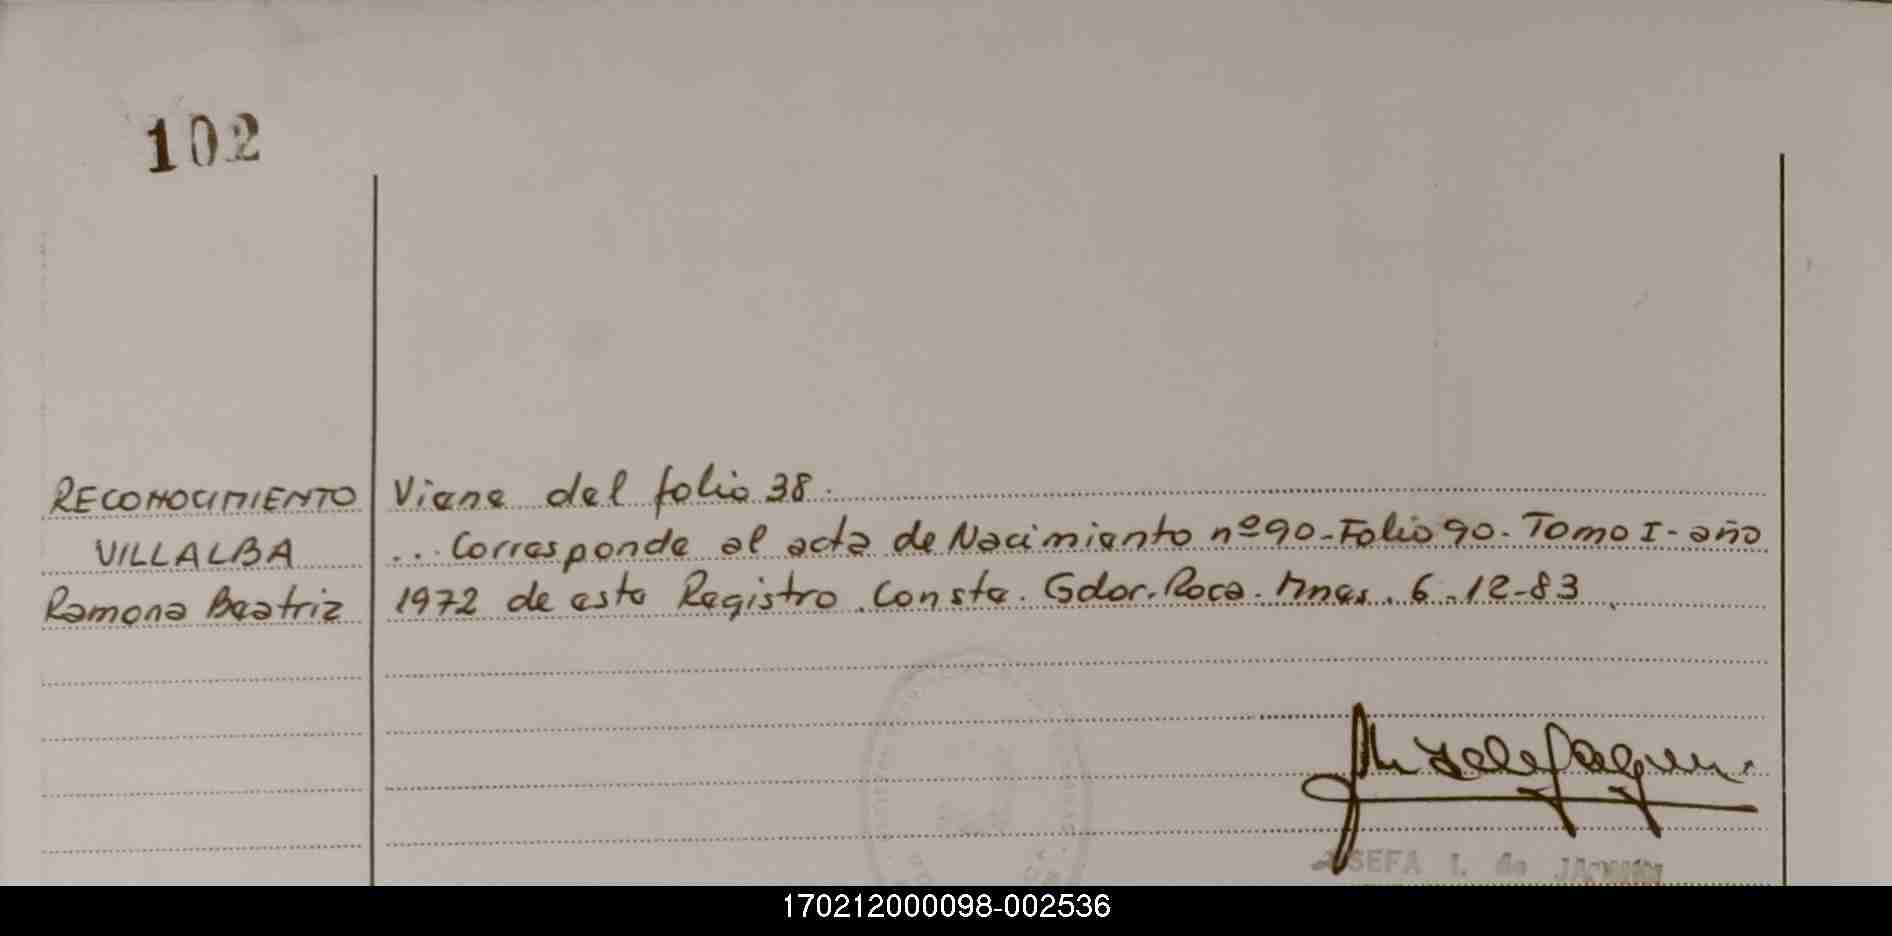 102
RECONOCIMIENTO
VILLALBA
Ramona Beatriz
Viene del folio 38.
... Corresponde al acta de Nacimiento nº 90 - Folio 90 - Tomo I - año
1972 de este Registro. Conste. Gdor. Roca. Mnes. 6-12-83
JOSEFA I. de
170212000098-002536